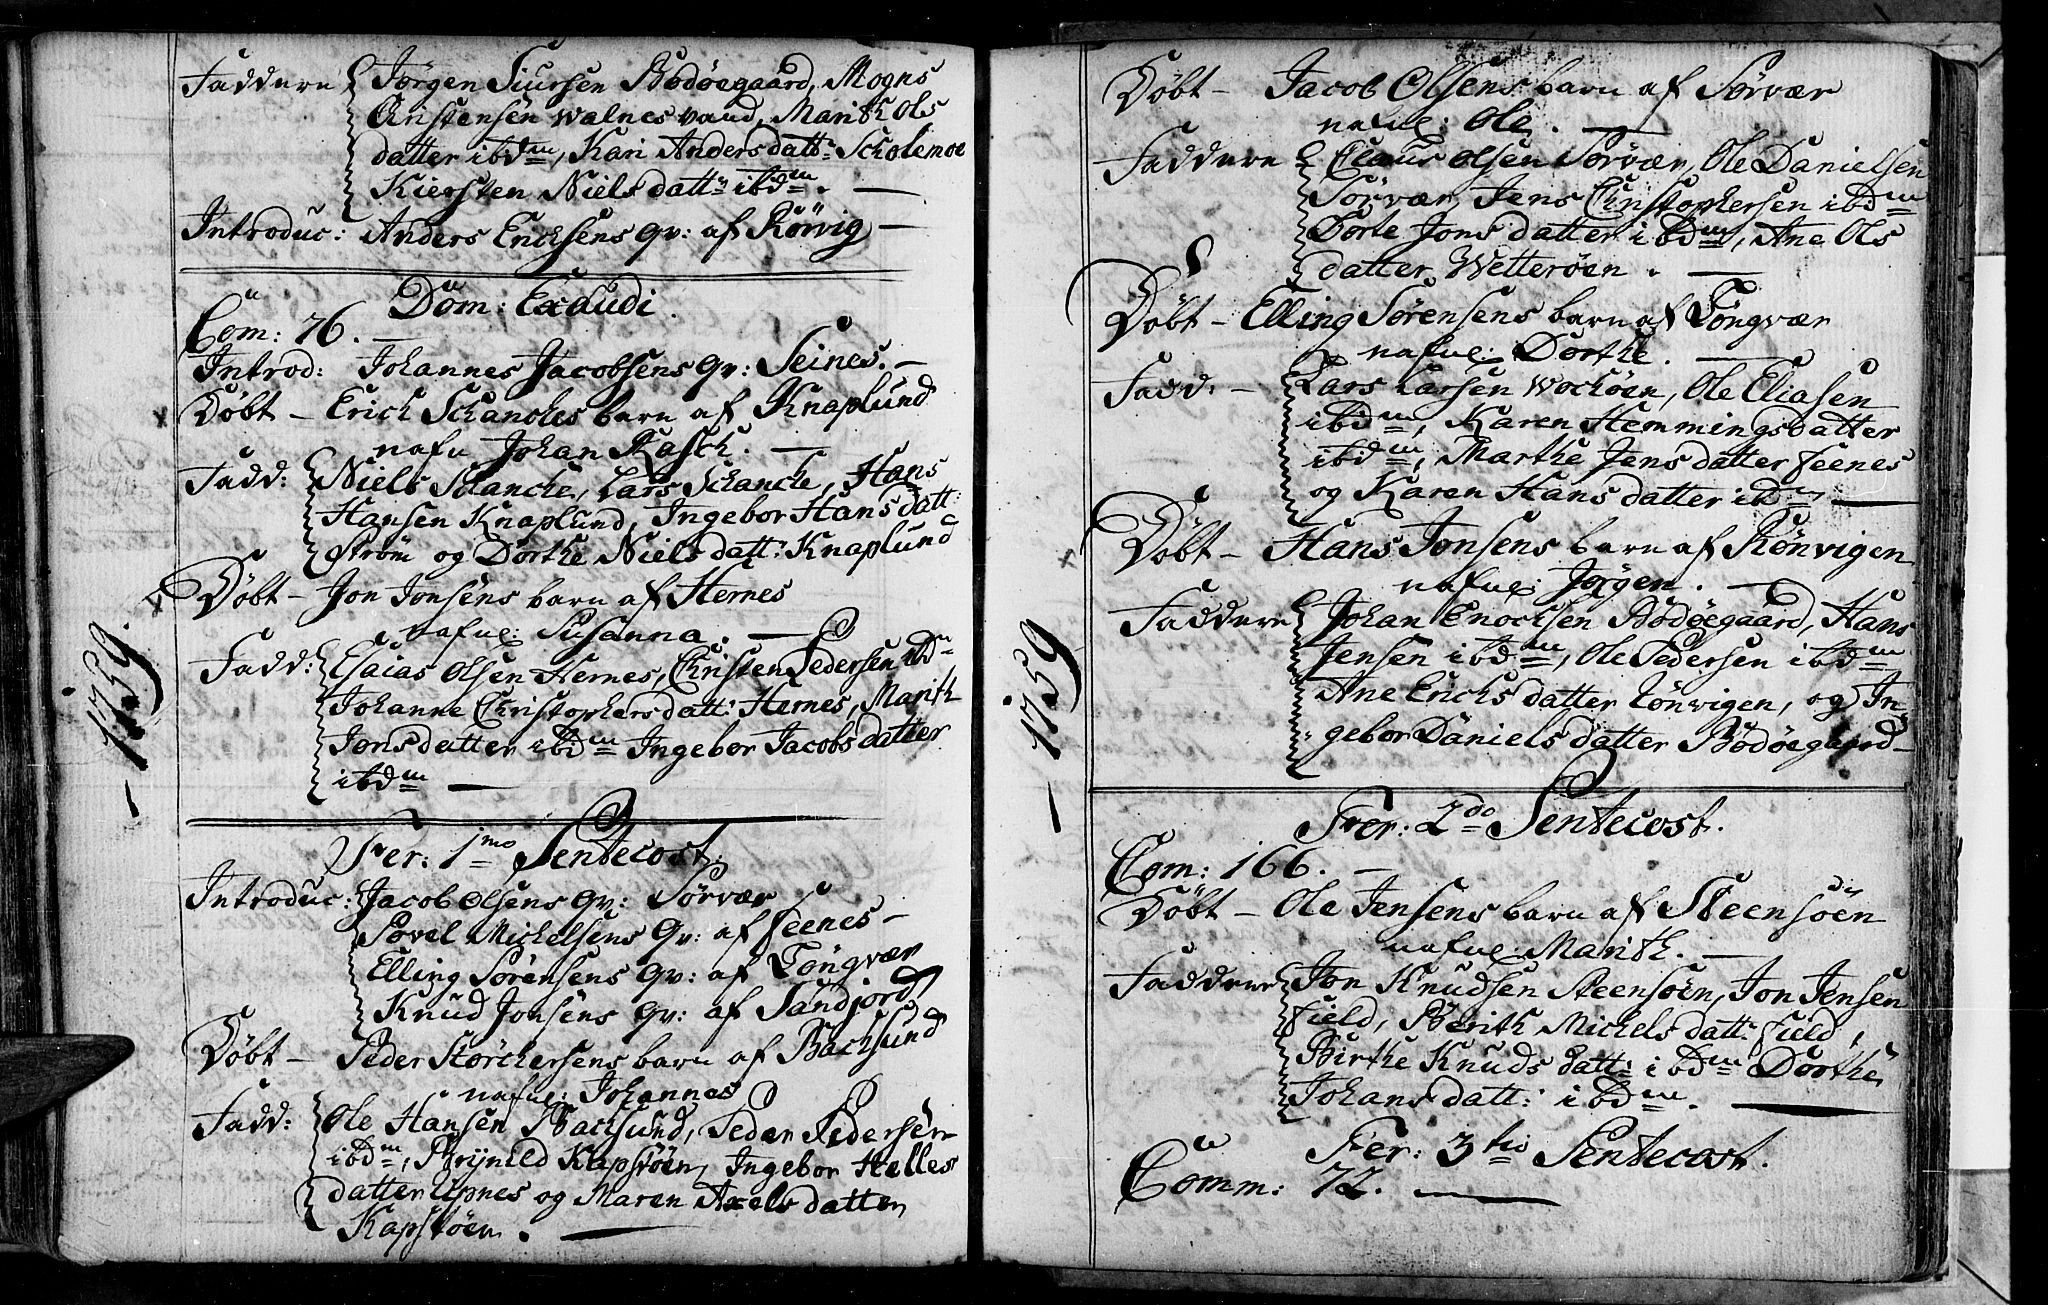 Faddere Jørgen Siursen Bodøegaard, Mogns
Cristensen Walnes vand, Marith Ols
datter ibdm, Kari Anders datt: Scholemoe
Kiersten Niels datt: ibdm. —
Introduc: Anders Enochsens Qv: af Rørvig —
Dom: Exaudi.
Com: 76. —
Introd: Johannes Jacobsens Qv: Seines. —
Døbt — Erich Schanches barn af Knaplund
nafn Johan Rasch. —
Fadd: Niels Schancke, Lars Schancke, Hans
Hansen Knaplund, Ingebor Hans datt:
Strøm og Dorthe Niels datt: Knaplund
Døbt — Jon Jonsens barn af Hernes
nafnl: Susanna. —
1759.
Fadd: Esaias Olsen Hernes, Christen Pedersen ibdm
Johanne Christophers datt: Hernes, Marith
Jons datter ibdm Ingebor Jacobs datter
ibdm —
Fer: 1mo Pentecost:
Introduc: Jacob Olsens Qv: Sørvær
Povel Michelsens Qv: af Feenes —
Elling Sørensens Qv: af Tongvær
Knud Jonsens Qv: af Sandjord
Døbt — Peder Størchersens barn af Bachsund
nafnl: Johannes
Fadd: Ole Hansen Bachsund, Peder Pedersen
ibdm, Brynild Kapstøen, Ingebor Helles
datter Upnes og Maren Axels datter
Kapstøen. —
Døbt — Jacob Olsens barn af Sørvær
nafnl: Ole. —
Faddere Claus Olsen Sørvær, Ole Danielsen
Sørvær, Jens Christophersen ibdm
Dorte Jons datter ibdm, Ane Ols
datter Wetterøen. —
Døbt — Elling Sørensens barn af Tongvær
nafnl: Dorthe. —
Fadd: — Lars Larsen Wochøen, Ole Eliasen
ibdm, Karen Hemmingsdatter
ibdm, Marthe Jens datter Feenes
og Karen Hans datter ibdm —
Døbt — Hans Jonsens barn af Rønvigen
nafnl: Jørgen. —
1759
Faddere Johan Enochsen Bodøegaard, Hans
Jensen ibdm, Ole Pedersen ibdm
Ane Erichs datter Rønvigen, og In
gebor Daniels datter Bodøegaard —
Fer: 2do Pentecost.
Com: 166. —
Døbt — Ole Jensens barn af Steensøen
nafnl Marith. —
Faddere Jon Knudsen Steensøen, Jon Jensen
Field, Berith Michels datt: Field,
Birthe Knuds datt: ibdm Dorthe
Johans datt: ibdm. —
Fer: 3tio Pentecost.
Comm: 72. —